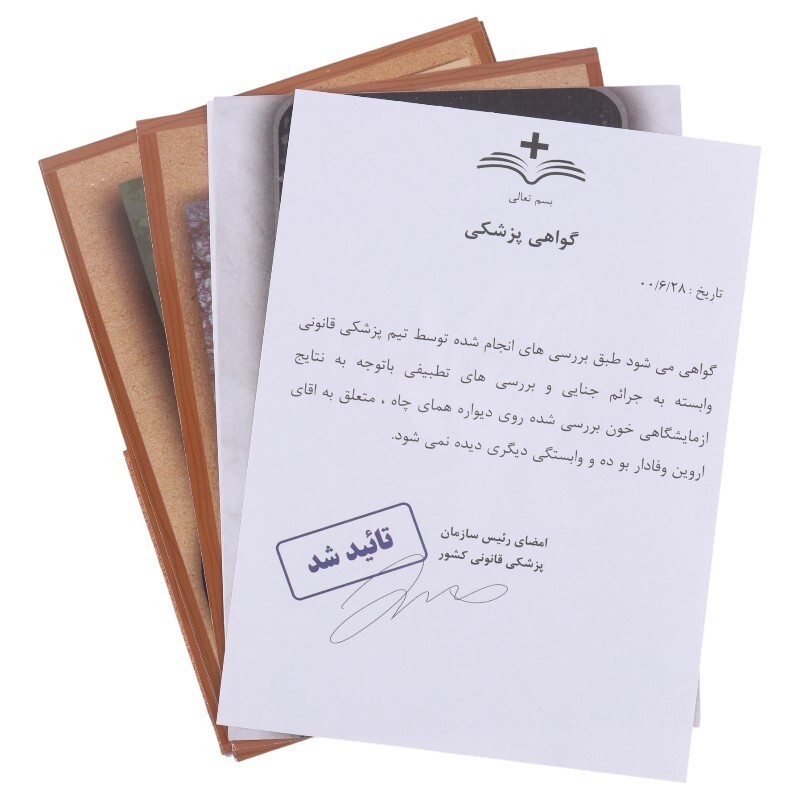 بسم تعالی
گواهی پزشکی
تاریخ : ۰۰/۶/۲۸
گواهی می شود طبق بررسی های انجام شده توسط تیم پزشکی قانونی
وابسته به جرائم جنایی و بررسی های تطبیفی باتوجه به نتایج
ازمایشگاهی خون بررسی شده روی دیواره همای چاه ، متعلق به اقای
اروین وفادار بو ده و وابستگی دیگری دیده نمی شود.
امضای رئیس سازمان
پزشکی قانونی کشور
تائید شد